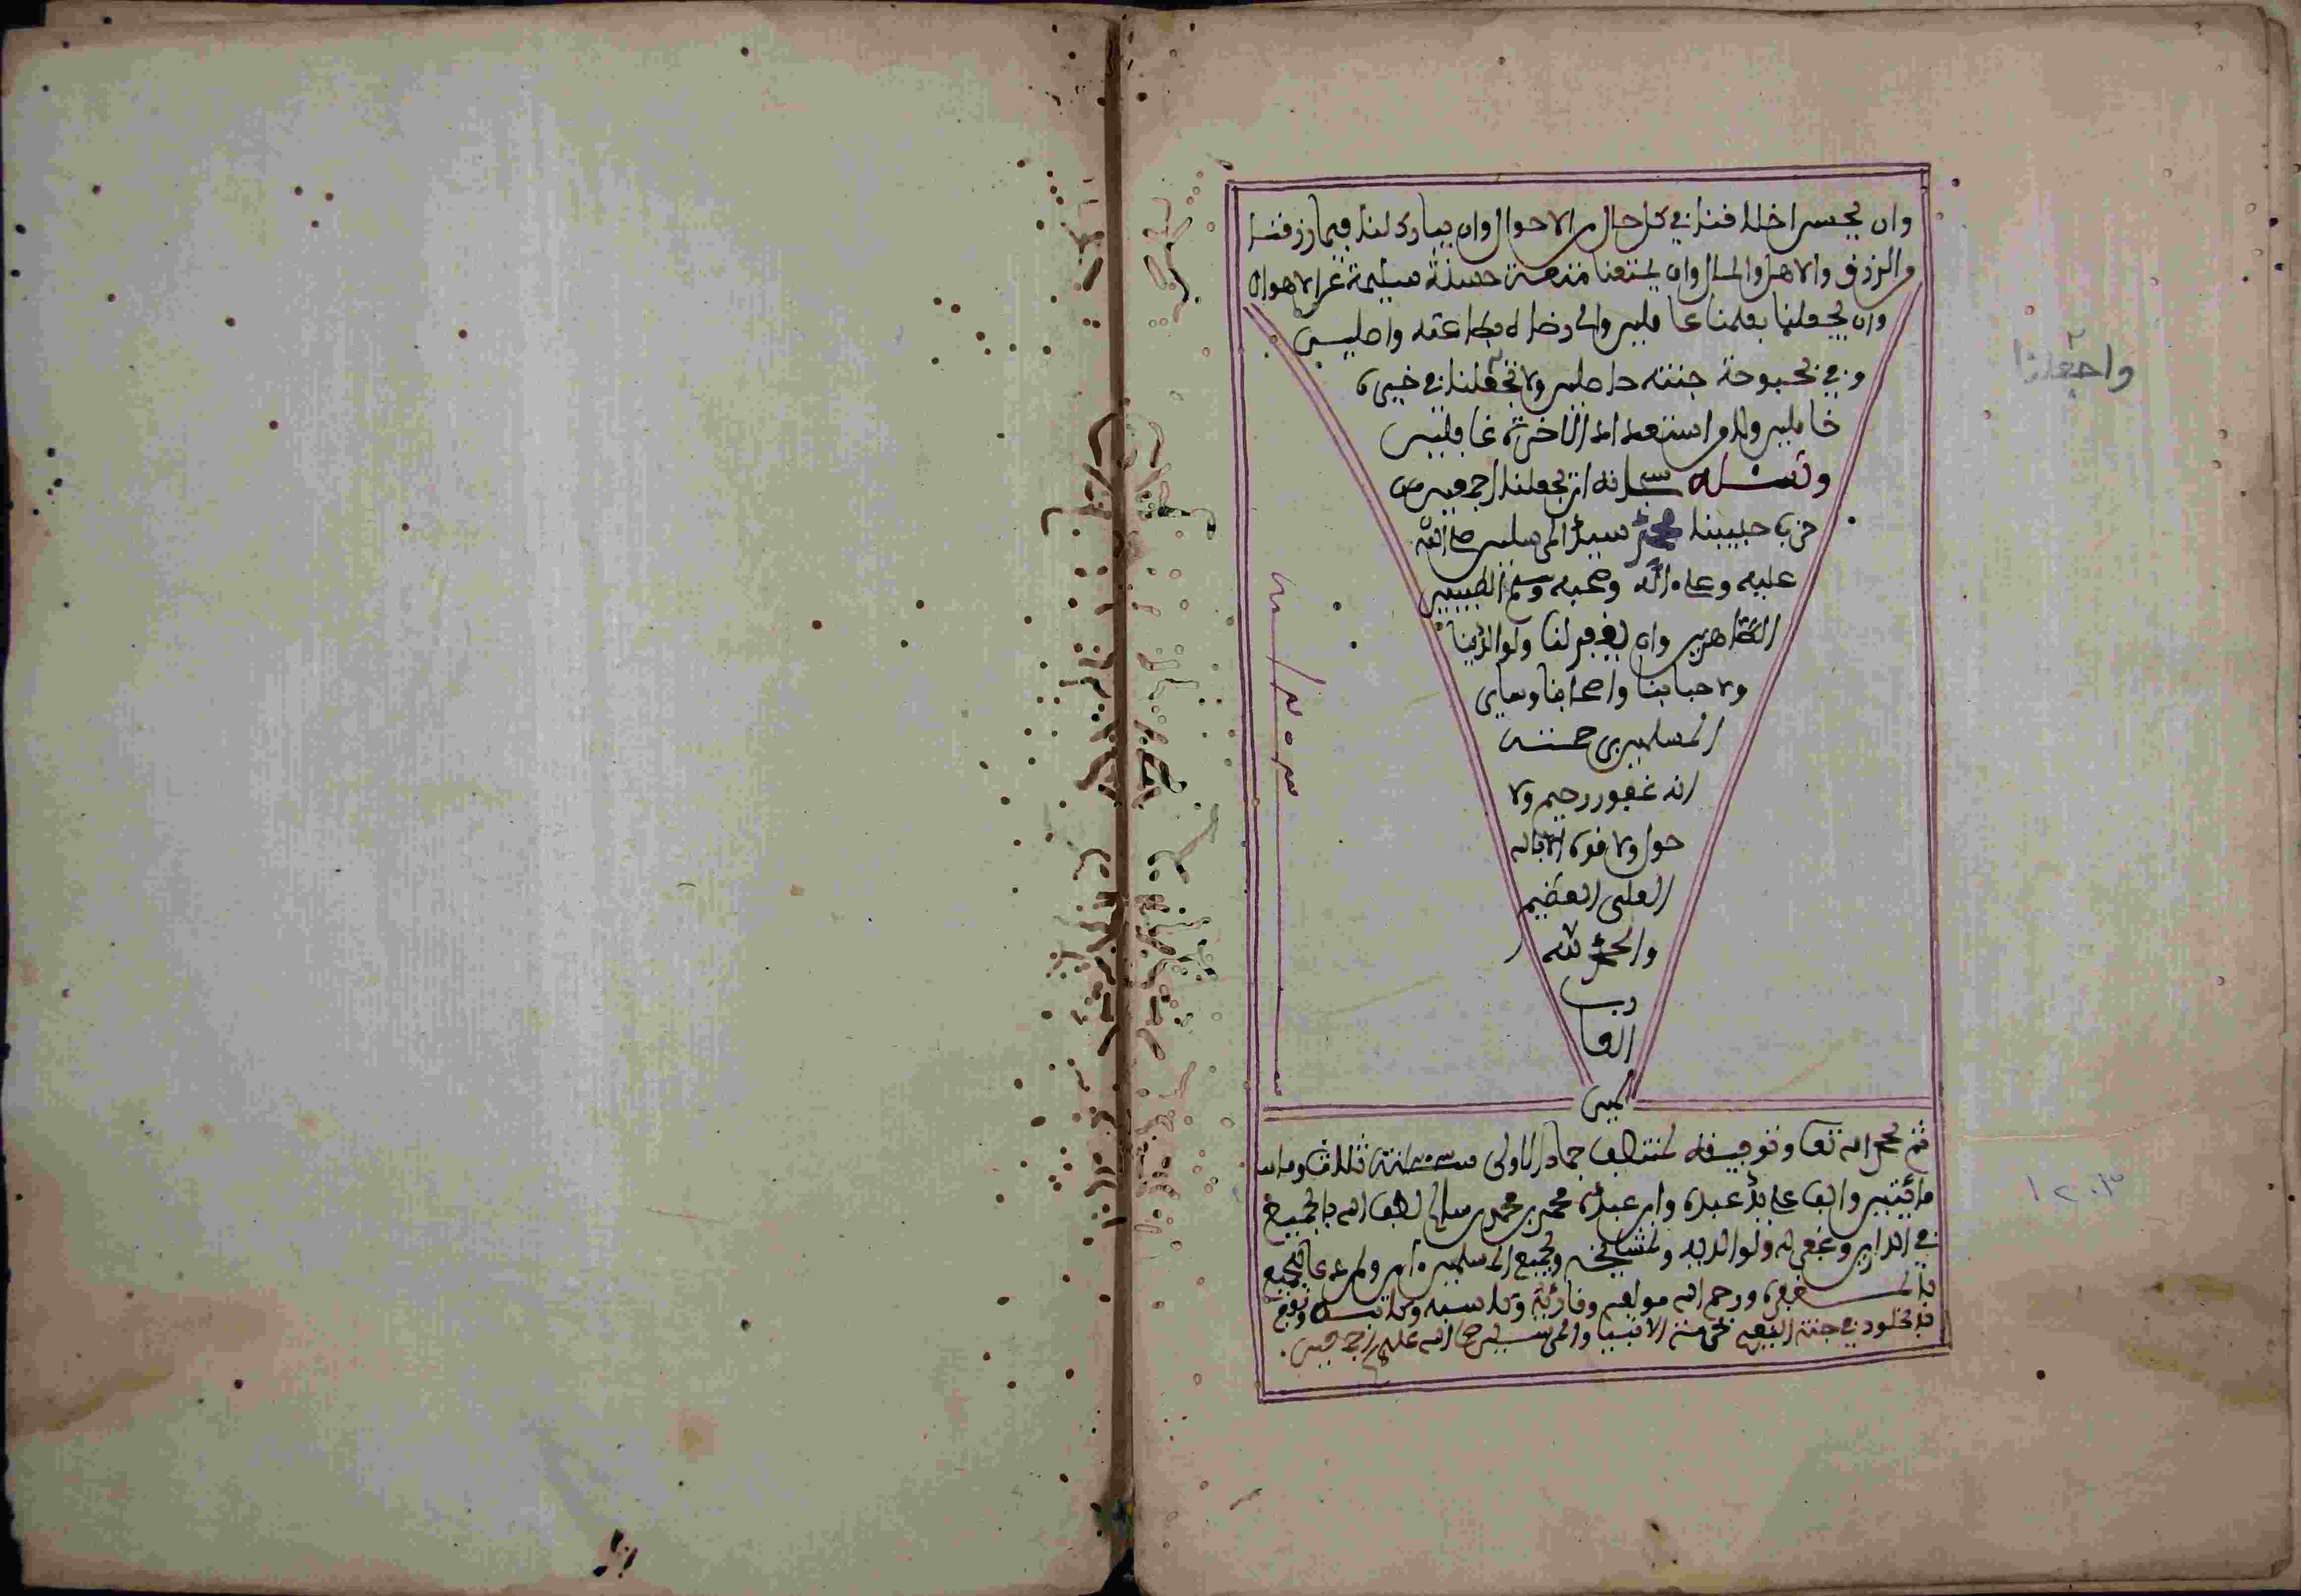 وان يحسن اخلاقنا في كل حال من الاحوال وان يبارك لنا فيما رزقنا
والرزق والاهل والمال وان يمتعنا متعة حسنة سليمة من الاهوال
وان يجعلنا بعلمنا عاملين والى رضاه بطاعته واصلين
وفي بحبوحة جنته داخلين ولا تجعلنا في
خاملين ولا الاخرة غافلين
ونسئله سبحانه ان يجعلنا اجمعين من
حزب حبيبنا محمد سيد المرسلين صلى الله
عليه وعلى ءاله وصحبه وسلم الطيبين
الطاهرين وان يغفر لنا ولوالدينا
ولاحبابنا واصحابنا وساير
المسلمين برحمته
انه غفور رحيم ولا
حول ولا قوة الا بالله
العلي العظيم
والحمد لله
رب
العا
لمين
تم بحمد الله تعا وتوفيقه لمنتصف جماد الاولى سنة ثلاث وما
مائتين والف على يد عبده وابن عبده محمد بن محمد بن لطف الله بالجميع
في الدارين وغفر له ولوالديه ولمشايخه ولجميع المسلمين ءامين ولمن دعا للجميع
بالمغفرة ورحم الله مولفه وقارئه وكاسبه وكاتبه
بالخلود في جنة النعيم بحرمة الانبيا والمرسلين صلى الله عليهم اجمعين
واجعلنا
١٢٠٣